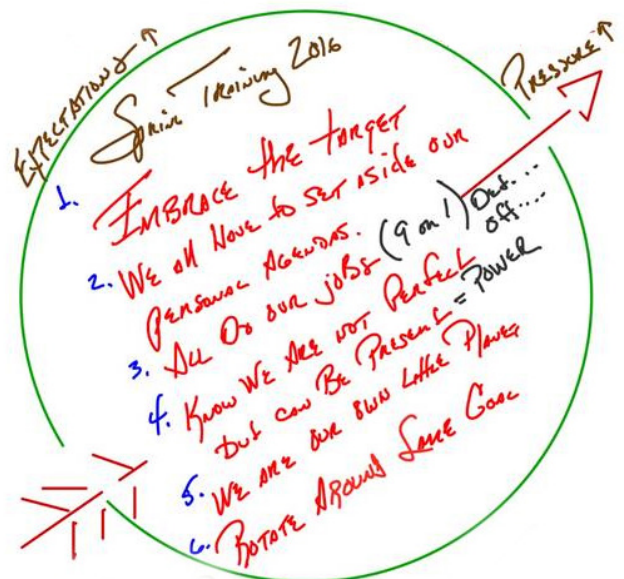 EXPECTATIONS ↑
PRESSURE ↑
Spring Training 2016
1. EMBRACE the TARGET
2. We All Have to SET ASide OUR
PERSONAL AGENDAS.
3. ALL Do OUR joBS (9 on 1) Def....
Off....
4. KNOW WE ARE NOT PERFECT
but can BE PRESENT = POWER
5. WE ARE OUR OWN Little PLANET
6. ROTATE AROUND SAME GOAL